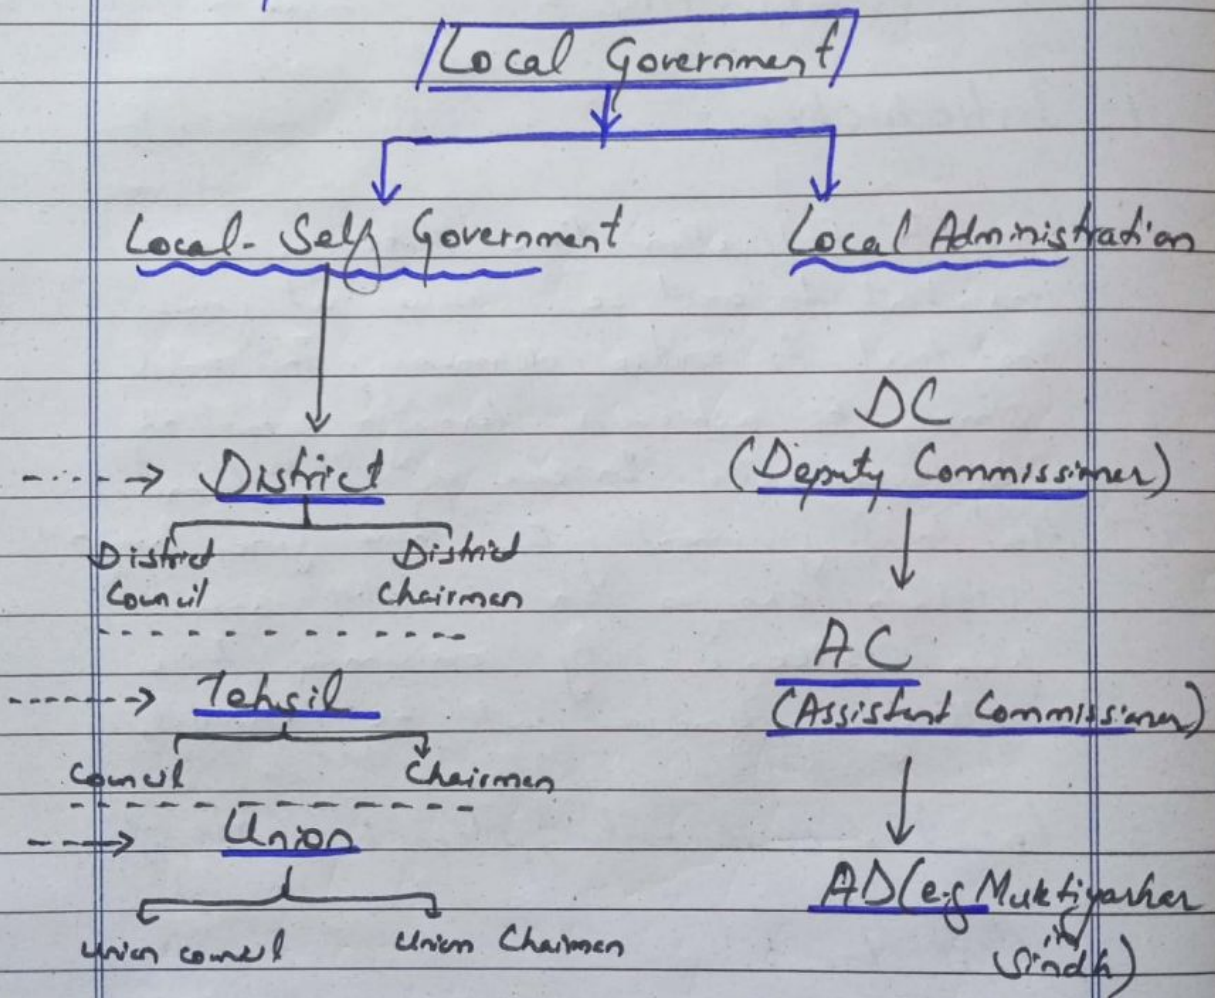 Local Government
Local-Self Government
Local Administration
District
District
Council
District
Chairman
Tehsil
Council
Chairman
Union
Union council
Union Chairman
DC
(Deputy Commissioner)
AC
(Assistant Commissioner)
AD (e.g Muktiyarkar
in
Sindh)